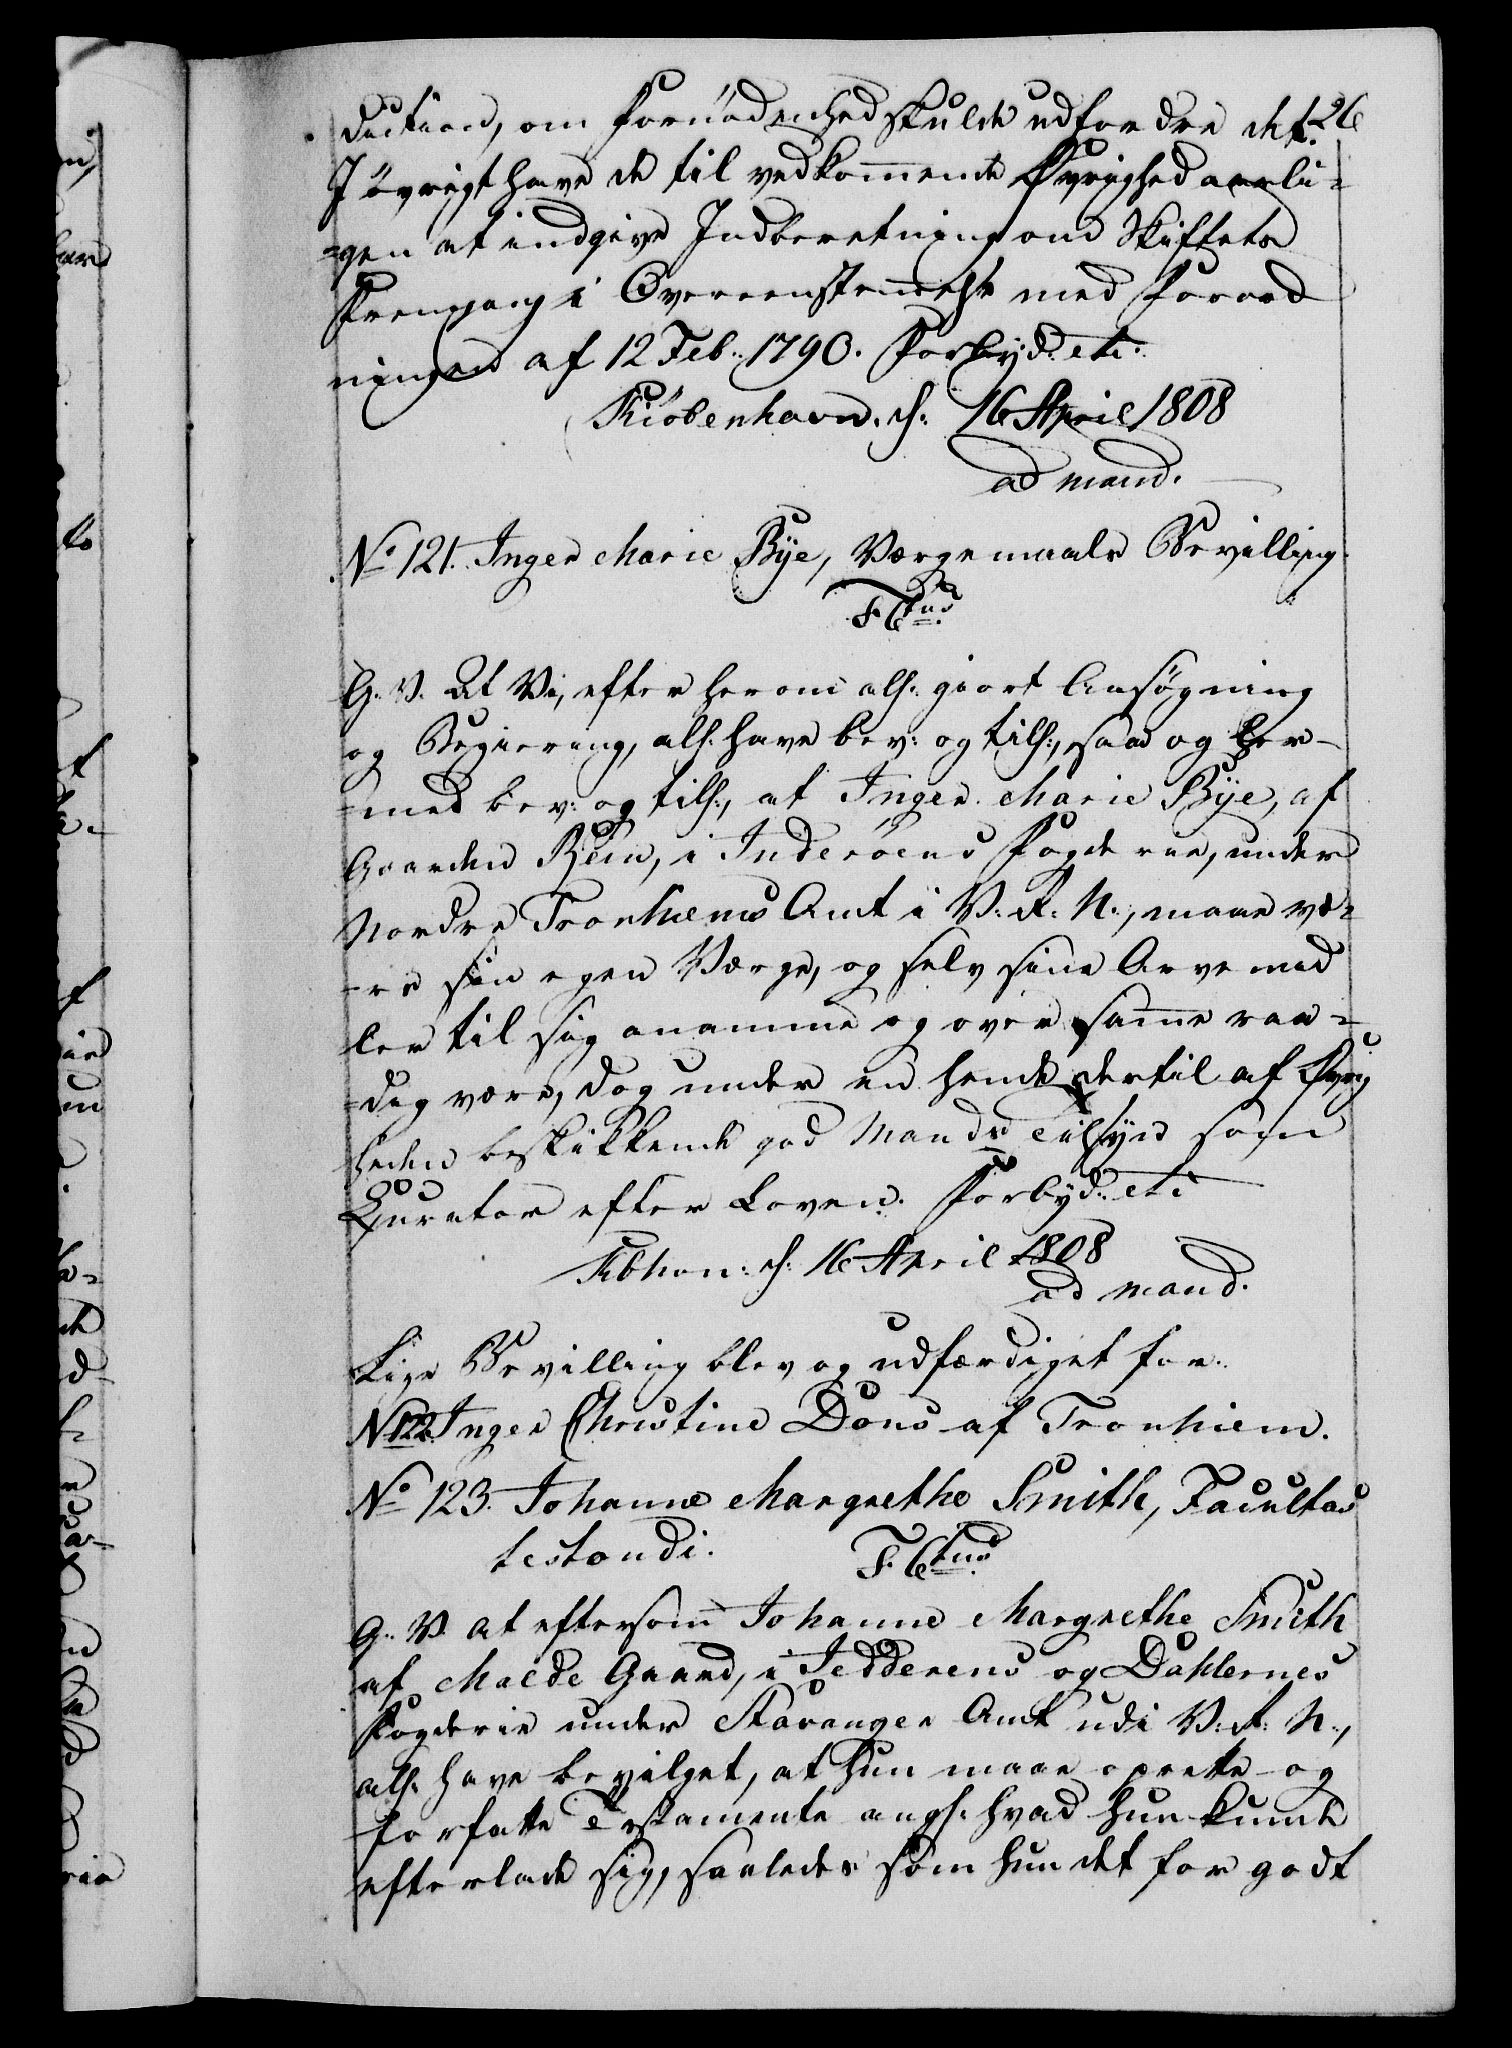 26
duction, om Fornødenhed skulde udfordre det.
I øvrigt have de til vedkom̅ende Øvrighed aarli=
=gen at indgive Indberetning om Skiftets
Fremgang i Overeenstem̅else med Forord
ningen af 12 Feb: 1790. Forbyd: etc:
Kiøbenhavn, d: 16 April 1808
ad mand.
No 121. Inger Marie Bÿe, Værgemaals Bevilling.
F. Ctus.
G. V. At Vi, efter herom als: giort Ansøgning
og Begiering, als: have bev: og till:, saa og her-
=med bev: og till:, at Inger Marie Bÿe, af
Gaarden Rein, i Inderøens Fogderie, under
Nordre Tronhiems Amt i V: R: N:, maae væ=
=re sin egen Værge, og selv sine Arvemid
ler til sig anamme og over sam̅e raa=
=dig være, dog under en hende dertil af Øvrig
heden beskikkende god Mands Tilsÿn som
Curator efter Loven. Forbyd: etc
Kbhvn: d: 16 April 1808
ad mand.
Lige Bevilling blev og udfærdiget for:
No 122. Inger Christine Dons af Tronhiem.
No 123. Johanne Margrethe Smith, Facultas
testandi.
F. Ctus.
G. V. At eftersom Johanne Margrethe Smith
af Malde Gaard, i Jedderens og Dahlernes
Fogderie under Stavanger Amt udi V: R: N:,
als: have bevilget, at hun maae oprette og
forfatte Testamente angl: hvad hun kunde
efterlade sig, saaledes som hun det for godt